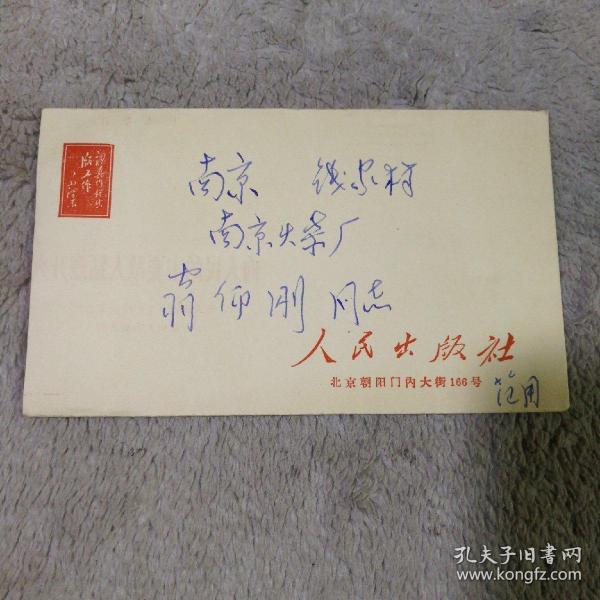 认真作好出
版工作
毛泽东
南京 钱家村
南京火柴厂
翁仰刚 同志
人民出版社
北京朝阳门内大街166号
范用
孔夫子旧书网
www.kongfz.com